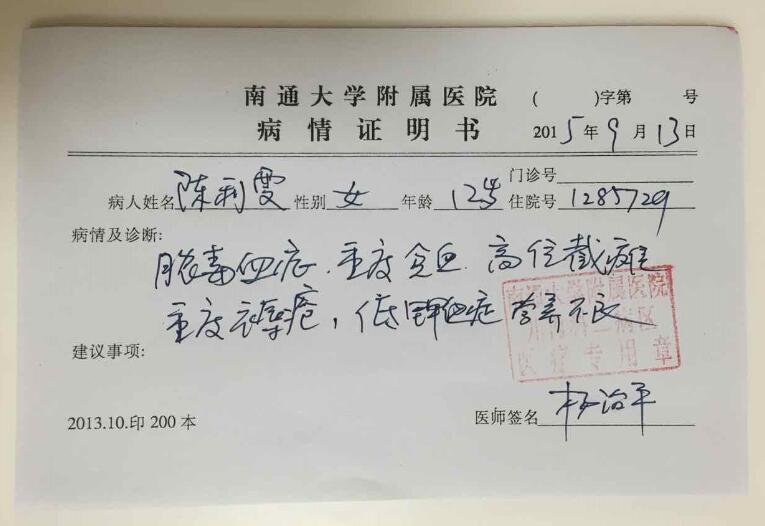 南通大学附属医院 ( )字第 号
病情证明书 2015年9月13日
门诊号
病人姓名 陈利雯 性别 女 年龄 12岁 住院号 1285729
病情及诊断:
脓毒血症. 重度贫血 高位截瘫
重度褥疮, 低钾血症 营养不良
南通大学附属医院
病区
医疗专用章
建议事项:
2013.10.印200本 医师签名 杨治平